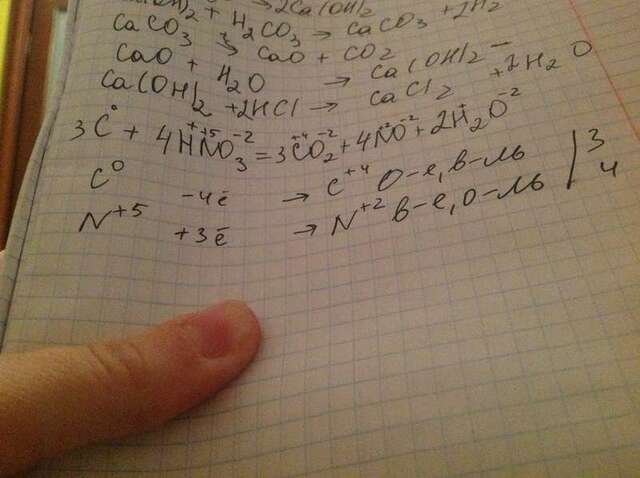 → 2Ca(OH)₂
(OH)₂ + H₂CO₃ → CaCO₃ + 2H₂
CaCO₃ → CaO + CO₂
CaO + H₂O → Ca(OH)₂ –
Ca(OH)₂ + 2HCl → CaCl₂ + 2H₂O
3C⁰ + 4H⁺N⁺⁵O₃⁻² = 3C⁺⁴O₂⁻² + 4N⁺²O⁻² + 2H₂⁺O⁻²
C⁰ -4ē → C⁺⁴ О-е, в-ль | 3
N⁺⁵ +3ē → N⁺² в-е, о-ль | 4